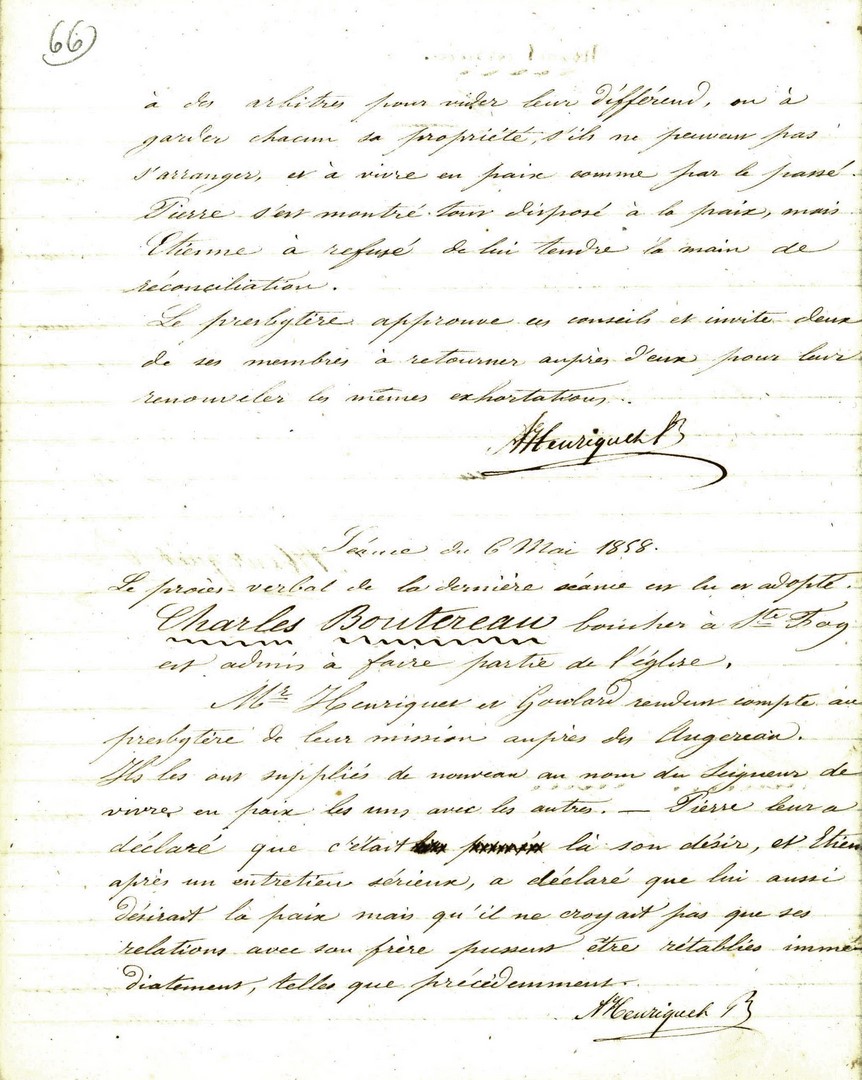 66
à des arbitres pour vider leur différend, ou à
garder chacun sa propriété, s'ils ne peuvent pas
s'arranger, et à vivre en paix comme par le passé.
Pierre s'est montré tout disposé à la paix, mais
Etienne à refusé de lui tendre la main de
réconciliation.
Le presbytère approuve ces conseils et invite deux
de ses membres à retourner auprès d'eux pour leur
renouveler les mêmes exhortations.
AHenriquet P
Séance du 6 Mai 1858.
Le procès-verbal de la dernière séance est lu et adopté.
Charles Boutereau boucher à Ste Foy
est admis à faire partie de l'église.
Mr Henriquet et Goulard rendent compte au
presbytère de leur mission auprès des Augereau.
Ils les ont suppliés de nouveau au nom du Seigneur de
vivre en paix les uns avec les autres. — Pierre leur a
déclaré que c'était là son désir, et Etien
après un entretien sérieux, a déclaré que lui aussi
désirait la paix mais qu'il ne croyait pas que ses
relations avec son frère pussent être rétablies immé
diatement, telles que précédemment.
AHenriquet P